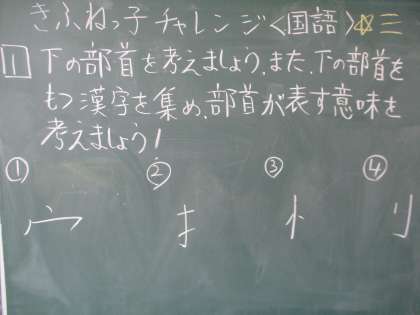 きふねっ子チャレンジ〈国語〉☆三
1 下の部首を考えましょう。また、下の部首を
もつ漢字を集め、部首が表す意味を
考えましょう!
① ② ③ ④
宀 扌 忄 刂